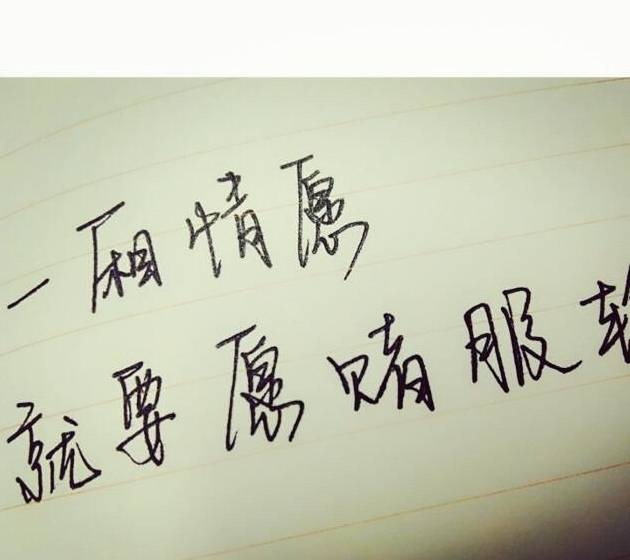 一厢情愿
就要愿赌服